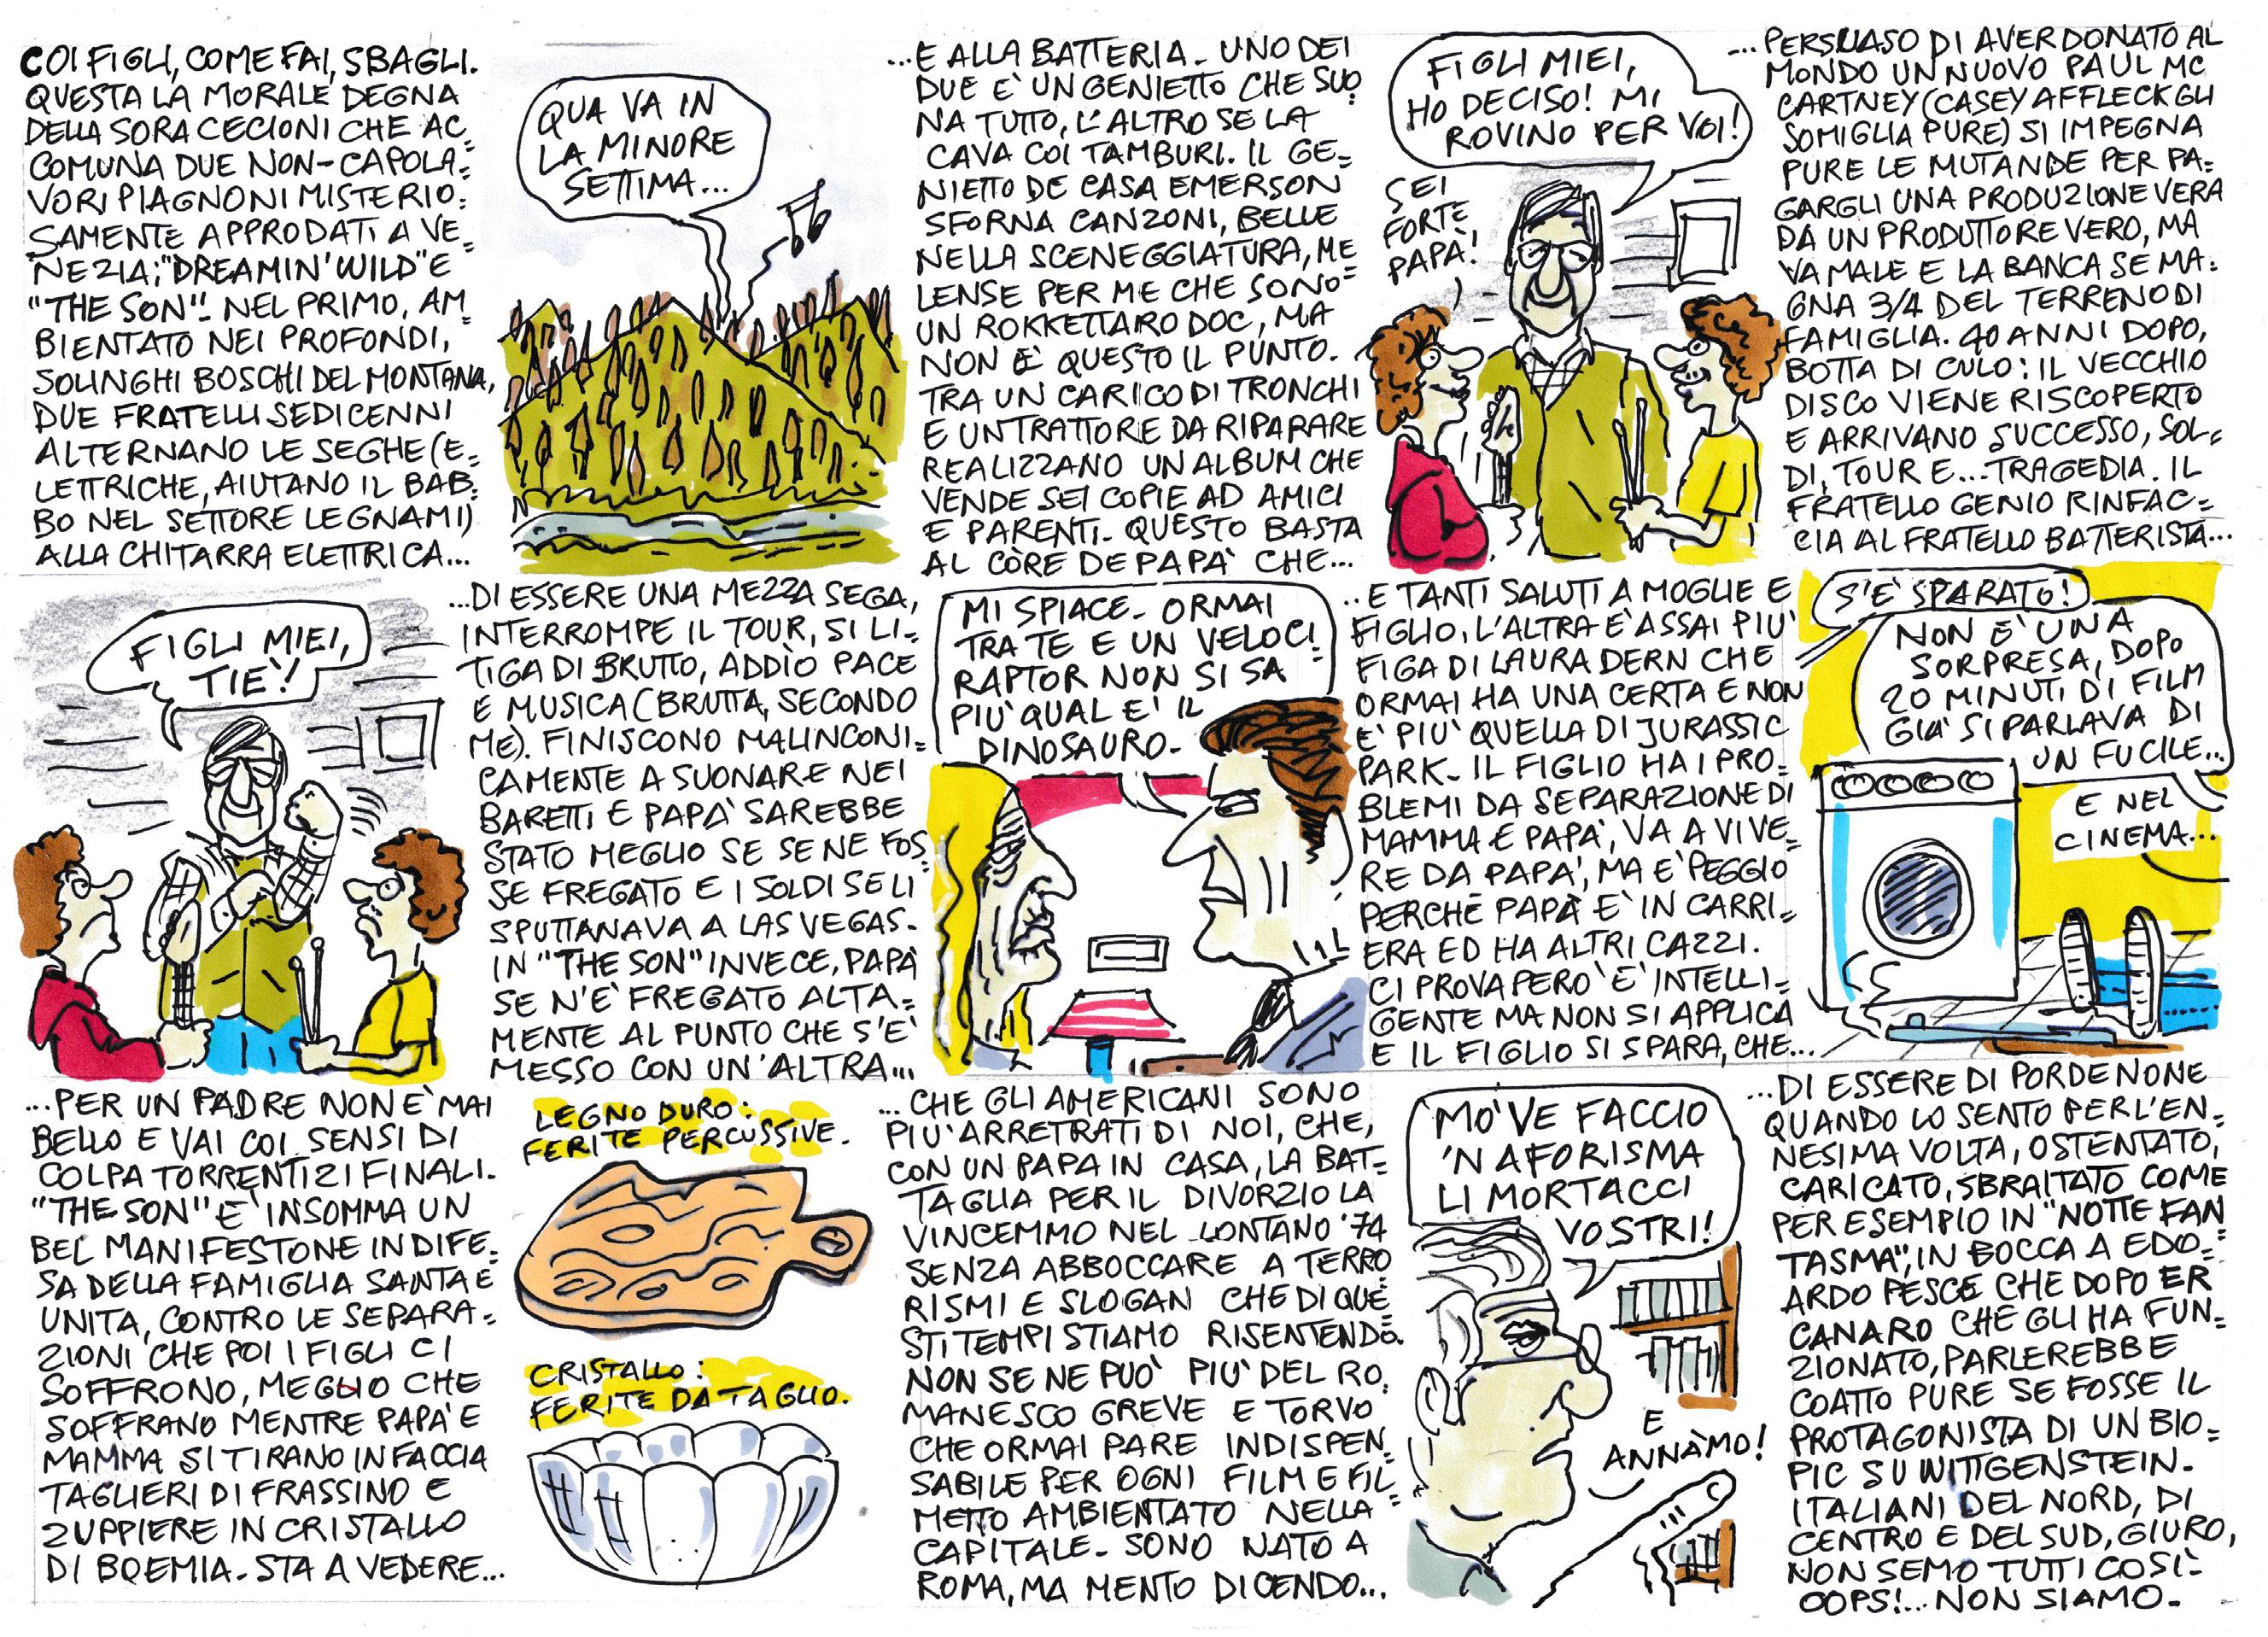 COI FIGLI, COME FAI, SBAGLI.
QUESTA LA MORALE DEGNA
DELLA SORA CECIONI CHE AC_
COMUNA DUE NON-CAPOLA=
VORI PIAGNONI MISTERIO=
SAMENTE APPRODATI A VE=
NEZIA: "DREAMIN' WILD" E
"THE SON". NEL PRIMO, AM_
BIENTATO NEI PROFONDI,
SOLINGHI BOSCHI DEL MONTANA,
DUE FRATELLI SEDICENNI
ALTERNANO LE SEGHE (E=
LETTRICHE, AIUTANO IL BAB=
BO NEL SETTORE LEGNAMI)
ALLA CHITARRA ELETTRICA...
QUA VA IN
LA MINORE
SETTIMA...
...E ALLA BATTERIA. UNO DEI
DUE E' UN GENIETTO CHE SUO_
NA TUTTO, L'ALTRO SE LA
CAVA COI TAMBURI. IL GE=
NIETTO DE CASA EMERSON
SFORNA CANZONI, BELLE
NELLA SCENEGGIATURA, ME_
LENSE PER ME CHE SONO
UN ROKKETTARO DOC, MA
NON E' QUESTO IL PUNTO.
TRA UN CARICO DI TRONCHI
E UN TRATTORE DA RIPARARE
REALIZZANO UN ALBUM CHE
VENDE SEI COPIE AD AMICI
E PARENTI. QUESTO BASTA
AL CÒRE DE PAPA' CHE...
FIGLI MIEI,
HO DECISO! MI
ROVINO PER VOI!
SEI
FORTE,
PAPA'!
...PERSUASO DI AVER DONATO AL
MONDO UN NUOVO PAUL MC
CARTNEY (CASEY AFFLECK GLI
SOMIGLIA PURE) SI IMPEGNA
PURE LE MUTANDE PER PA=
GARGLI UNA PRODUZIONE VERA
DA UN PRODUTTORE VERO, MA
VA MALE E LA BANCA SE MA=
GNA 3/4 DEL TERRENO DI
FAMIGLIA. 40 ANNI DOPO,
BOTTA DI CULO: IL VECCHIO
DISCO VIENE RISCOPERTO
E ARRIVANO SUCCESSO, SOL=
DI, TOUR E... TRAGEDIA. IL
FRATELLO GENIO RINFAC=
CIA AL FRATELLO BATTERISTA...
FIGLI MIEI,
TIE'!
...DI ESSERE UNA MEZZA SEGA,
INTERROMPE IL TOUR, SI LI=
TIGA DI BRUTTO, ADDÌO PACE
E MUSICA (BRUTTA, SECONDO
ME). FINISCONO MALINCONI=
CAMENTE A SUONARE NEI
BARETTI E PAPA' SAREBBE
STATO MEGLIO SE SE NE FOS_
SE FREGATO E I SOLDI SE LI
SPUTTANAVA A LAS VEGAS.
IN "THE SON" INVECE, PAPÀ
SE N'E' FREGATO ALTA=
MENTE AL PUNTO CHE S'E'
MESSO CON UN'ALTRA...
MI SPIACE. ORMAI
TRA TE E UN VELOCI=
RAPTOR NON SI SA
PIU' QUAL E' IL
DINOSAURO.
...E TANTI SALUTI A MOGLIE E
FIGLIO. L'ALTRA E' ASSAI PIU'
FIGA DI LAURA DERN CHE
ORMAI HA UNA CERTA E NON
E' PIU' QUELLA DI JURASSIC
PARK. IL FIGLIO HA I PRO=
BLEMI DA SEPARAZIONE DI
MAMMA E PAPA', VA A VIVE=
RE DA PAPA', MA E' PEGGIO
PERCHÈ PAPÀ E' IN CARRI=
ERA ED HA ALTRI CAZZI.
CI PROVA PERO' E' INTELLI=
GENTE MA NON SI APPLICA
E IL FIGLIO SI SPARA, CHE...
S'E' SPARATO!
NON E' UNA
SORPRESA, DOPO
20 MINUTI DI FILM
GIA' SI PARLAVA DI
UN FUCILE...
E NEL
CINEMA...
...PER UN PADRE NON E' MAI
BELLO E VAI COI SENSI DI
COLPA TORRENTIZI FINALI.
"THE SON" E' INSOMMA UN
BEL MANIFESTONE IN DIFE=
SA DELLA FAMIGLIA SANTA E
UNITA, CONTRO LE SEPARA=
ZIONI CHE POI I FIGLI CI
SOFFRONO, MEGLIO CHE
SOFFRANO MENTRE PAPA' E
MAMMA SI TIRANO IN FACCIA
TAGLIERI DI FRASSINO E
ZUPPIERE IN CRISTALLO
DI BOEMIA. STA A VEDERE...
LEGNO DURO:
FERITE PERCUSSIVE.
CRISTALLO:
FERITE DA TAGLIO.
...CHE GLI AMERICANI SONO
PIU' ARRETRATI DI NOI, CHE,
CON UN PAPA IN CASA, LA BAT=
TAGLIA PER IL DIVORZIO LA
VINCEMMO NEL LONTANO '74
SENZA ABBOCCARE A TERRO=
RISMI E SLOGAN CHE DI QUE=
STI TEMPI STIAMO RISENTENDO.
NON SE NE PUO' PIU' DEL RO=
MANESCO GREVE E TORVO
CHE ORMAI PARE INDISPEN=
SABILE PER OGNI FILM E FIL=
METTO AMBIENTATO NELLA
CAPITALE. SONO NATO A
ROMA, MA MENTO DICENDO...
MO' VE FACCIO
'N AFORISMA
LI MORTACCI
VOSTRI!
E
ANNÀMO!
...DI ESSERE DI PORDENONE
QUANDO LO SENTO PER L'EN=
NESIMA VOLTA, OSTENTATO,
CARICATO, SBRAITATO COME
PER ESEMPIO IN "NOTTE FAN
TASMA", IN BOCCA A EDO=
ARDO PESCE CHE DOPO ER
CANARO CHE GLI HA FUN=
ZIONATO, PARLEREBBE
COATTO PURE SE FOSSE IL
PROTAGONISTA DI UN BIO=
PIC SU WITTGENSTEIN.
ITALIANI DEL NORD, DI
CENTRO E DEL SUD, GIURO,
NON SEMO TUTTI COSI'-
OOPS!... NON SIAMO.